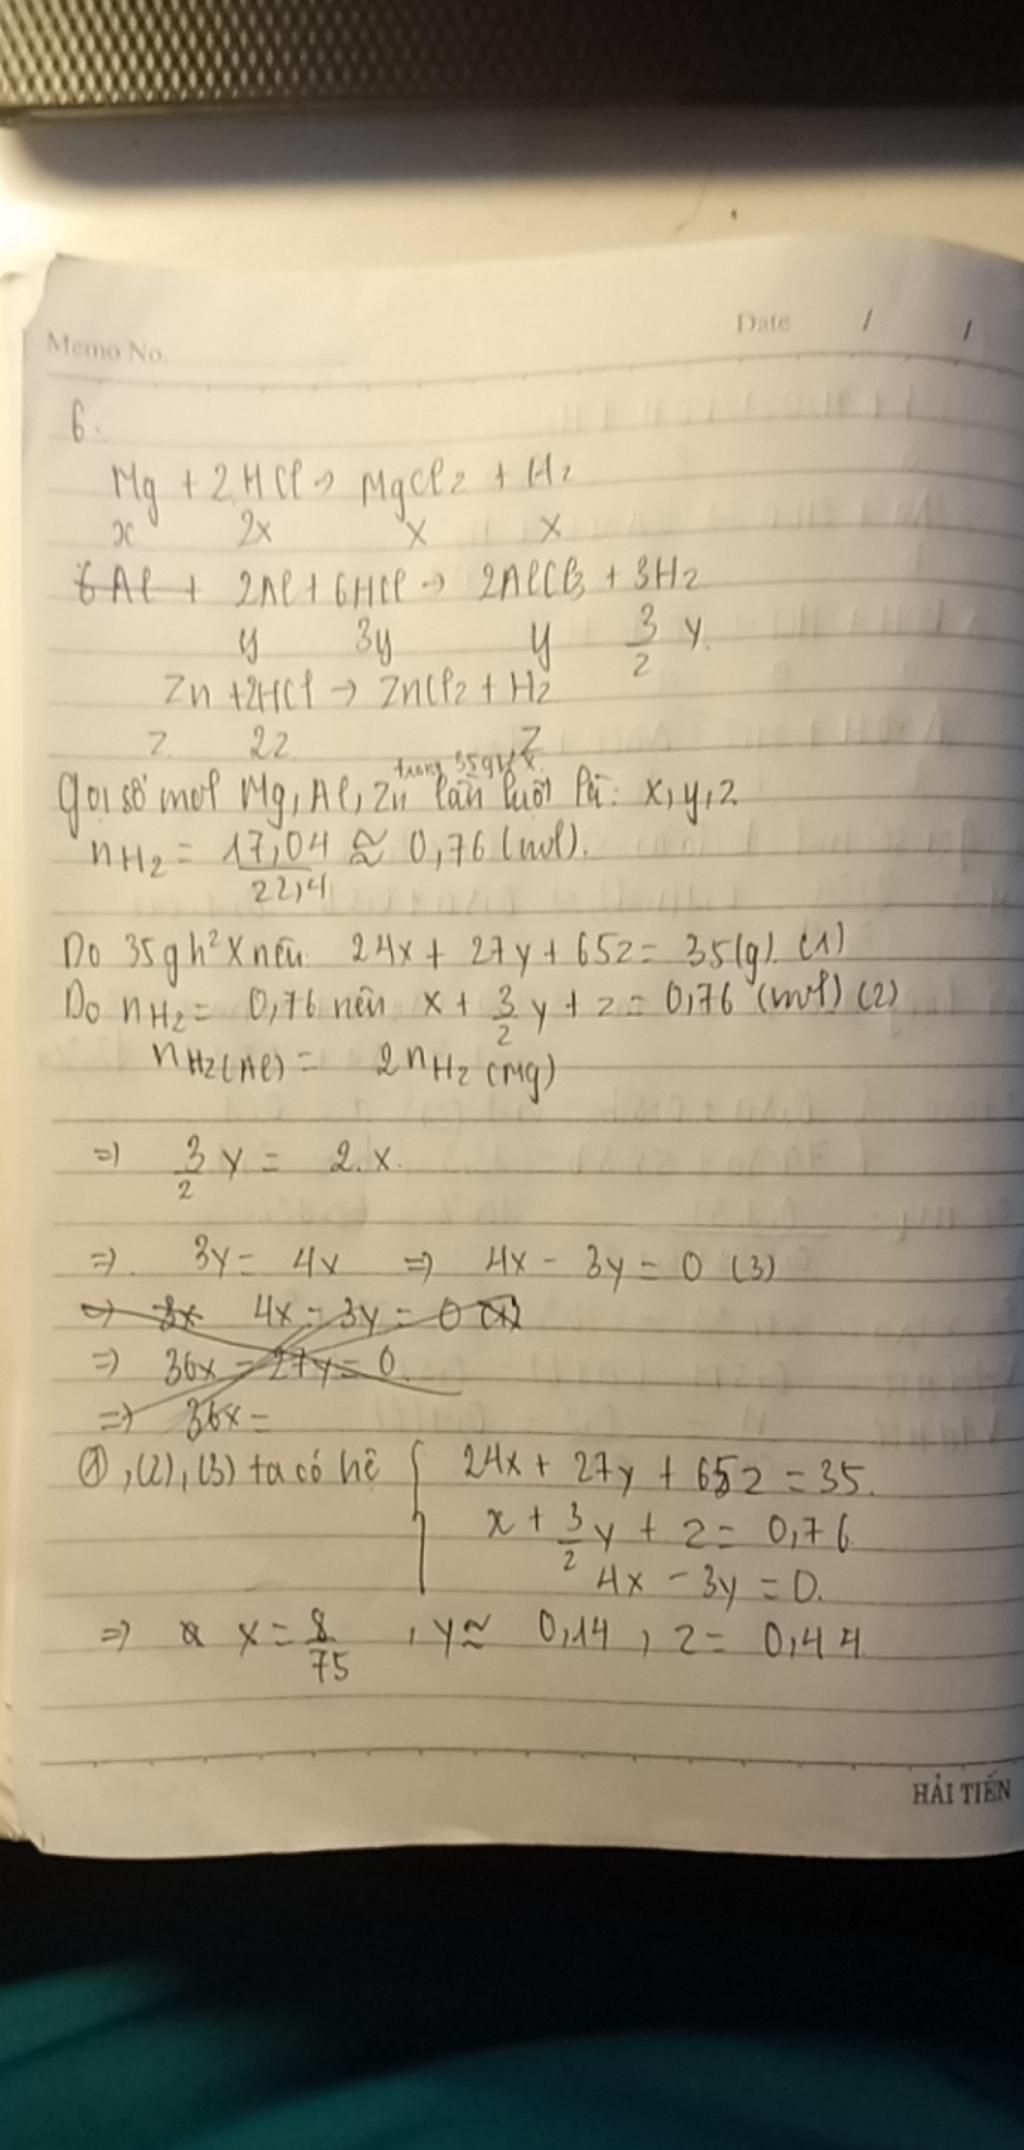 Memo No.
Date / /
6.
Mg + 2HCl → MgCl2 + H2
x 2x x x
6Al + 2Al + 6HCl → 2AlCl3 + 3H2
y 3y y 3/2 y.
Zn + 2HCl → ZnCl2 + H2
z 2z z
trong 35g h² X
Gọi số mol Mg, Al, Zn lần lượt là: x, y, z
nH2 = 17,04/22,4 ≈ 0,76 (mol).
Do 35g h² X nên 24x + 27y + 65z = 35 (g). (1)
Do nH2 = 0,76 nên x + 3/2 y + z = 0,76 (mol) (2)
nH2(Al) = 2nH2(Mg)
=> 3/2 y = 2.x.
=> 3y = 4x => 4x - 3y = 0 (3)
=> 3x 4x - 3y = 0
=> 36x - 27y = 0
=> 36x =
(1), (2), (3) ta có hệ { 24x + 27y + 65z = 35.
x + 3/2 y + z = 0,76
4x - 3y = 0.
=> x = 8/75 , y ≈ 0,14 , z = 0,44
HẢI TIẾN